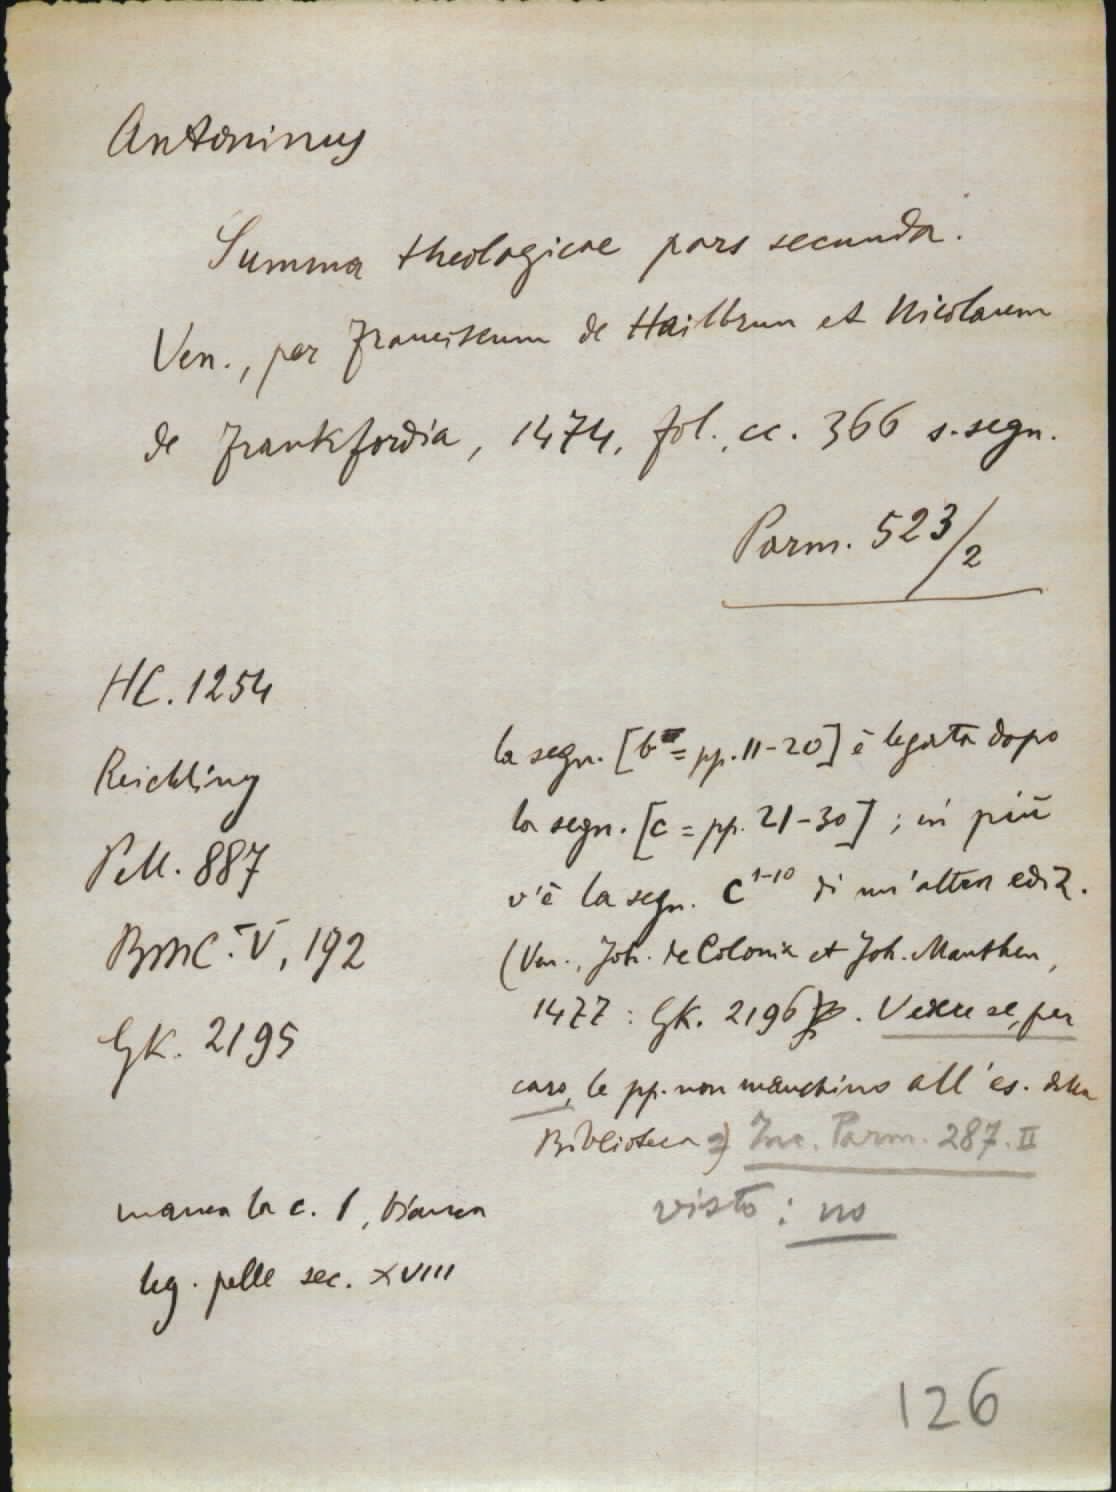 Antoninus
Summa theologicae pars secunda.
Ven., per Franciscum de Hailbrun et Nicolaum
de Frankfordia, 1474, fol., cc. 366 s. segn.
Parm. 523/2
HC. 1254
Reichling
Pell. 887
BMC. V, 192
GK. 2195
la segn. [b = pp. 11-20] è legata dopo
la segn. [c = pp. 21-30] ; in più
v'è la segn. C 1-10 di un'altra ediz.
(Ven., Joh. de Colonia et Joh. Manthen,
1477 : GK. 2196 . Vedere se, per
caso, le pp. non manchino all'es. della
Biblioteca) Inc. Parm. 287. II
visto : no
manca la c. 1, bianca
leg. pelle sec. XVIII
126